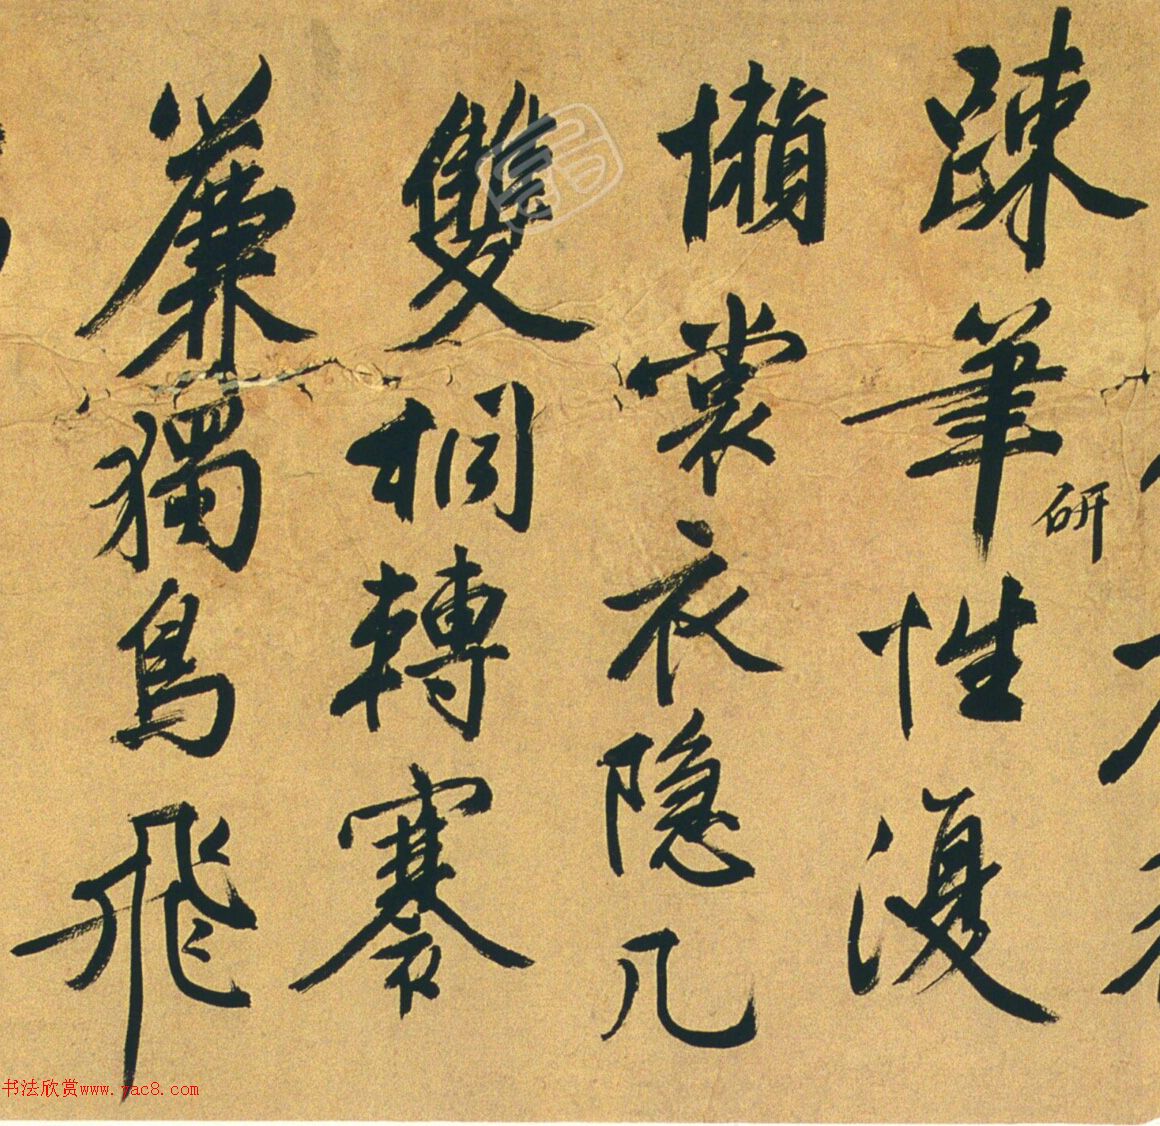 踈筆性復
研
懶裳衣隐几
雙桐轉褰
簾獨鳥飛
书法欣赏www.yac8.com